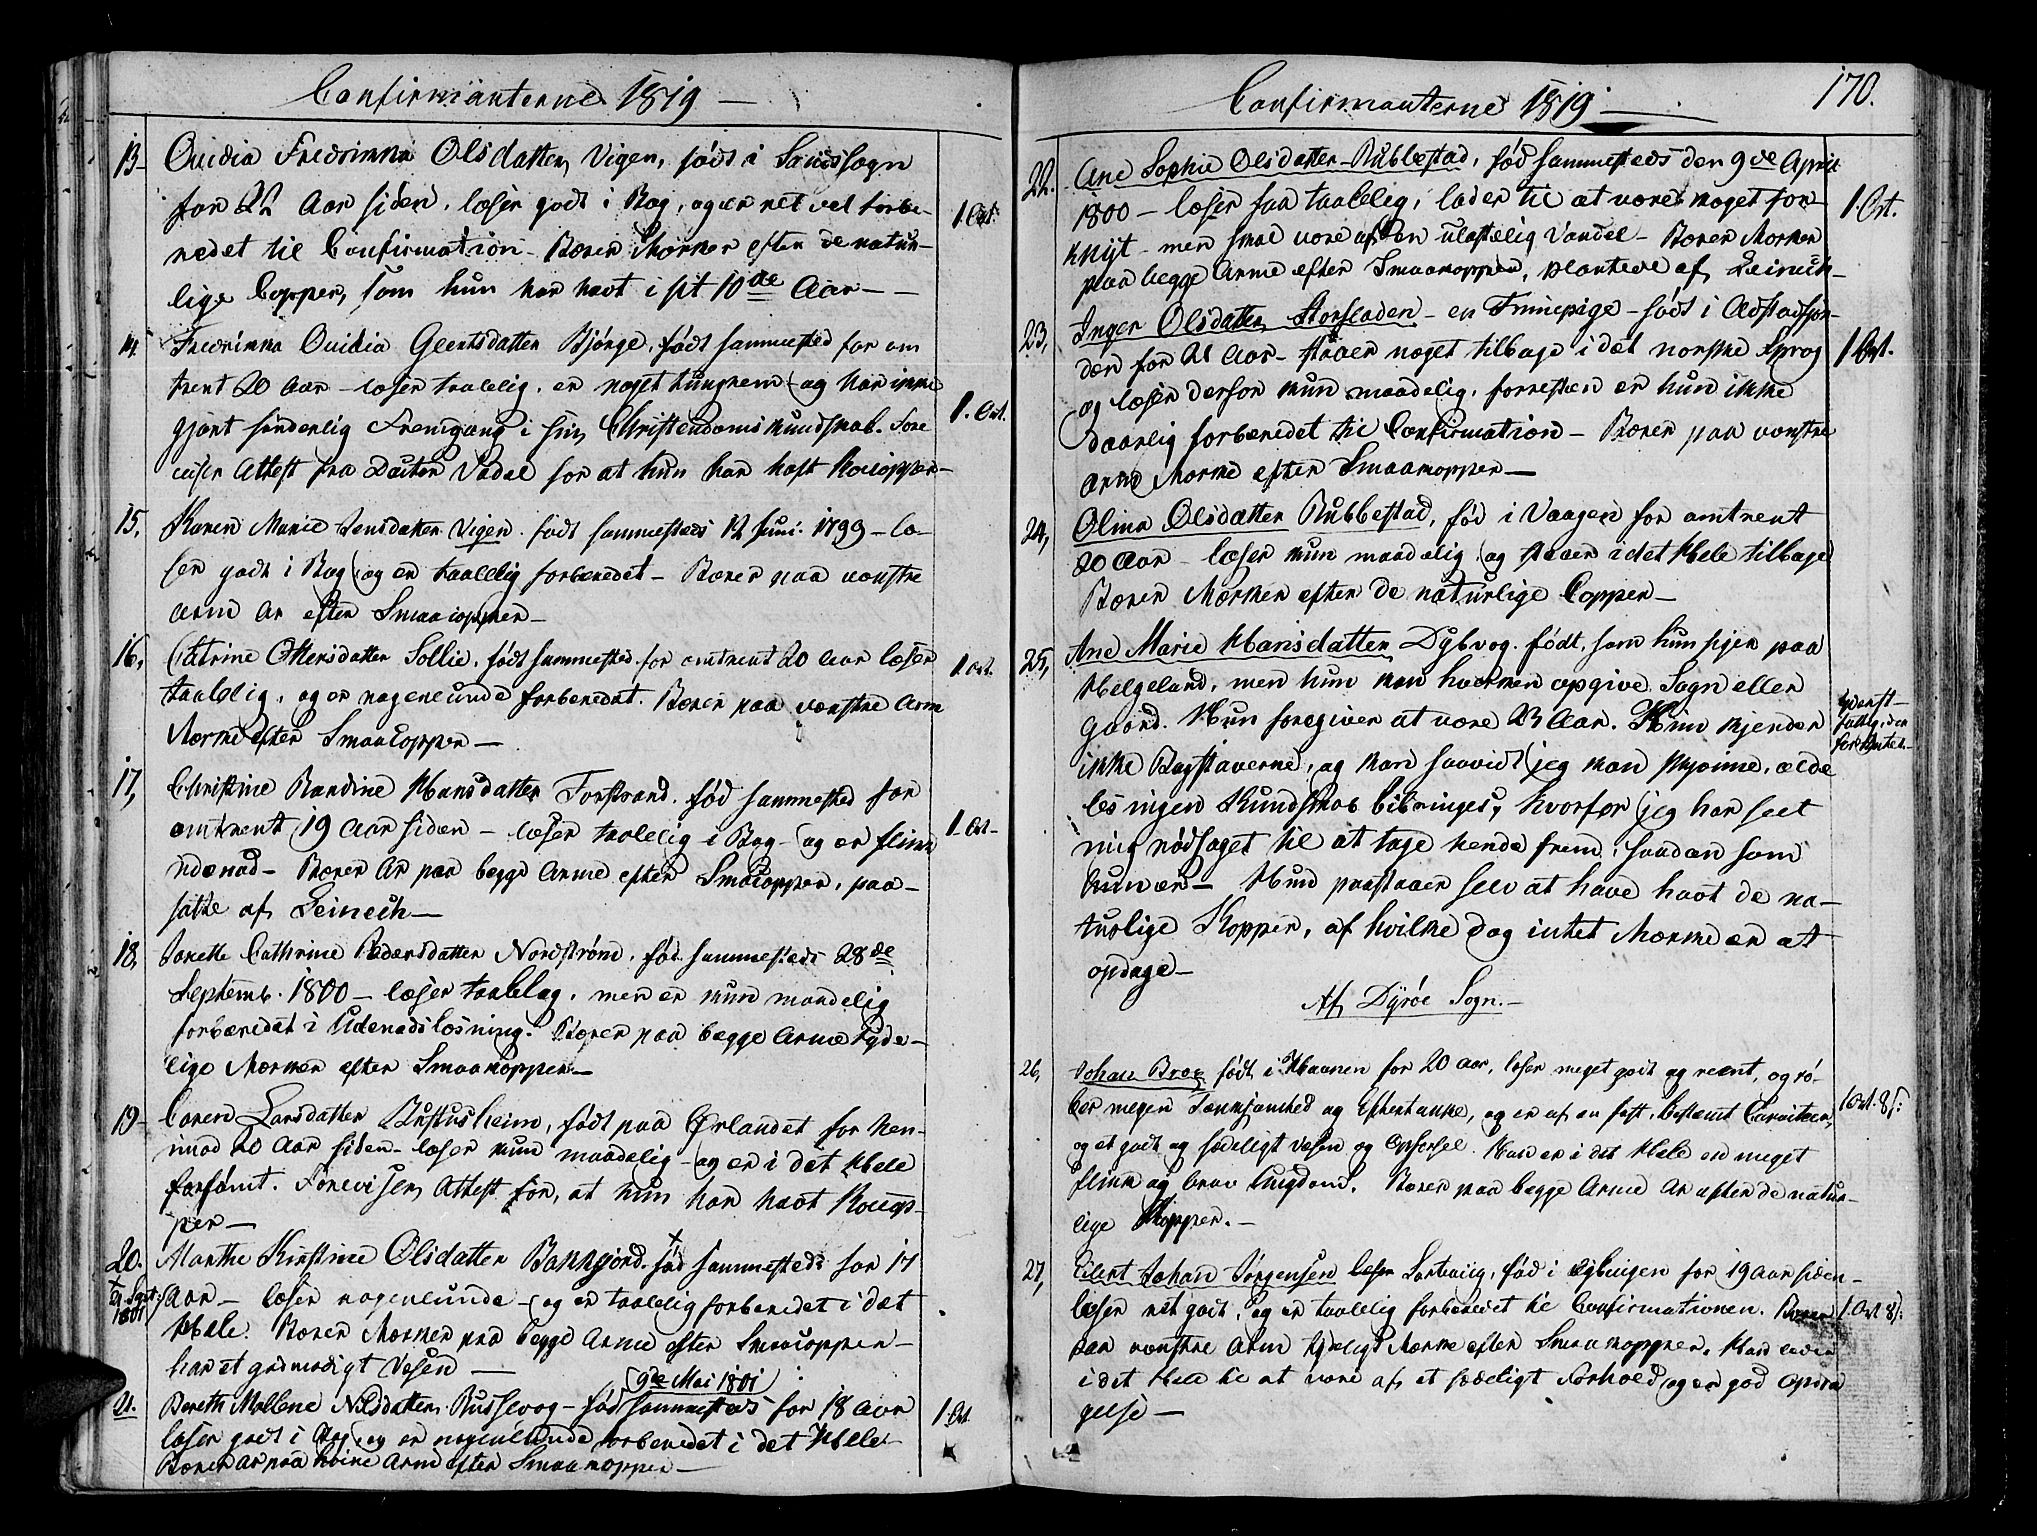 Confirmanterne 1819 —
13 Ovidia Fredrikka Olsdatter Vigen, født i Sands Sogn
for 22 Aar siden, læser godt i Bog, og er ret vel forbe-
redet til Confirmation — Bærer Mærker efter de natur-
lige Copper, som hun har havt i sit 10de Aar — —
1 Ort.
14. Fredrikka Ovidia Geertsdatter Bjørge, født sammested for om
trent 20 Aar — læser taalelig, er noget tungnem og har ikke
gjort sønderlig Fremgang i sin Christendoms Kundskab. Fore
viser Attest fra Doctor Vedel for at hun har haft Koucopper —
1. Ort.
15, Karen Marie Jensdatter Vigen. født sammesteds 12 Juni 1799 — læ-
ser godt i Bog og er taalelig forberedet — Bærer paa venstre
Arm Ar efter Smaacopper —
16, Catrine Ottersdatter Sollie, født sammested for omtrent 20 Aar læser
taalelig, og er nogenlunde forberedet. Bærer paa venstre Arm
Mærke efter Smaacopper —
1 Ort.
17, Christine Randine Hansdatter Forstrand. fød sammested for
omtrent 19 Aar siden — læser taalelig i Bog — og er flink
udenad — Bærer Ar paa begge Arme efter Smaacopper, paa-
satte af Leinech —
1 Ort —
18, Janette Cathrine Pedersdatter Nordstrøm, fød sammesteds 28de
Septemb. 1800 — læser taalelig, men er kun maadelig
forberedet i Udenadslæsning. Bærer paa begge Arme tyde-
lige Mærker efter Smaakopper —
19 — Caren Larsdatter Bustusheim, født paa Ørlandet for hen-
imod 20 Aar siden — læser kun maadelig — og er i det Hele
forsømt. Foreviser Attest for, at hun har havt Koucop-
per —
20. Marthe Kirstine Olsdatter Bakkejord fød sammesteds for 17
× 21 Sept: 1801
Aar — læser nogenlunde — og er taalelig forberedet i det
Hele. Bærer Mærker paa begge Arme efter Smaacopper —
har et godmodigt Væsen —
9de Mai 1801
21. Bereth Mallene Nilsdatter Russevog — fød sammesteds for 18 Aar
læser godt i Bog, og er nogenlunde forberedet i det Hele
Bærer Ar paa høire Arm efter Smaakopper —
1 Ort
Confirmanterne 1819 —
170.
22. Ane Sophie Olsdatter Rubbestad, fød sammesteds den 9de April
1800 — læser saa taalelig, lader til at være noget for-
knyt — men skal være af en ulastelig Vandel — Bærer Mærker
paa begge Arme efter Smaakopper, plantede af Leinech —
1. Ort.
23, Inger Olsdatter Storsladen — en Finnepige — født i Astafjor-
den for 21 Aar — staaer noget tilbage i det norske Sprog
og læser derfor kun maadelig, forresten er hun ikke
daarlig forberedet til Confirmation — Bærer paa venstre
Arm Mærke efter Smaakopper —
1 Ort.
24, Olina Olsdatter Rubbestad, fød i Vaagen for omtrent
20 Aar — læser kun maadelig og staaer i det Hele tilbage
Bærer Mærker efter de naturlige Copper —
25, Ane Marie Hansdatter Dybvog. født, som hun siger paa
Helgeland, men hun kan hverken opgive Sogn eller
Gaard. Hun foregiver at være 23 Aar. Hun kjender
ikke Bogstaverne, og kan saavidt jeg kan skjønne, alde
les ingen Kundskab bibringes, hvorfor jeg har seet
mig nødsaget til at tage hende frem, saadan som
hun er — Hun paastaaer selv at have havt de na-
turlige Kopper, af hvilke dog intet Mærke er at
opdage —
Af Dyrøe Sogn. —
26, Johan Broe født i Havnen for 20 Aar, læser meget godt og reent, og rø-
ber megen Tænksomhed og Eftertanke, og er af en fast, bestemt Caracteer,
og et godt og sædeligt Væsen og Opførsel. Han er i det Hele en meget
flink og brav Ungdom. Bærer paa begge Arme Ar efter de natur-
lige Kopper. —
1 Ort. 8 s:
27, Eilert Johan Jørgensen læser Sørtevig, fød i Gybingen for 19 Aar siden —
læser ret godt, og er taalelig forberedet til Confirmationen. Bærer
paa venstre Arm tydeligt Mærke efter Smaakopper. Han lader
i det Hele til at være af et sædeligt Forhold og er god Opdra
gelse —
1. Ort 8 s: